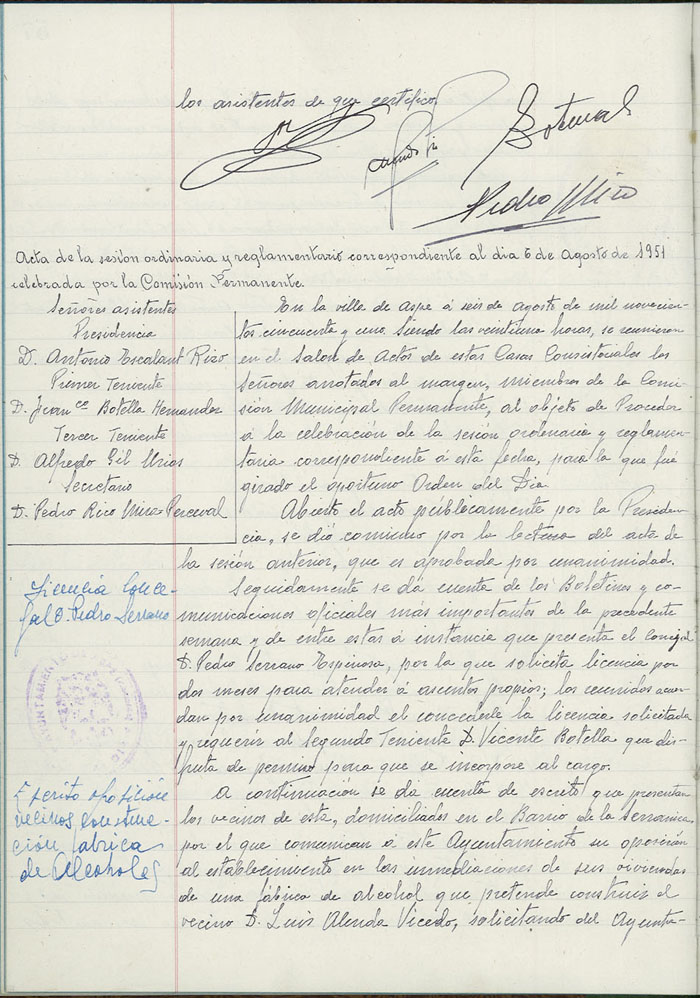 los asistentes de que certifico.
Botella
Pedro Miro
Acta de la sesión ordinaria y reglamentaria correspondiente al dia 6 de Agosto de 1951
celebrada por la Comisión Permanente.
Señores asistentes
Presidencia
D. Antonio Escalant Rizo
Primer Teniente
D. Juan Botella Hernandez
Tercer Teniente
D. Alfredo Gil Urios
Secretario
D. Pedro Rico Mira-Perceval
En la villa de Aspe á seis de Agosto de mil novecien-
tos cincuenta y uno. Siendo las veintiuna horas, se reunieron
en el Salon de Actos de estas Casas Consistoriales los
Señores anotados al margen, miembros de la Comi-
sión Municipal Permanente, al objeto de Proceder
á la celebración de la sesión ordenaria y reglamen-
taria correspondiente á esta fecha, para la que fué
girado el oportuno Orden del Dia.
Abierto el acto publicamente por la Presiden-
cia, se dió comienzo por la lectura del acta de
la sesión anterior, que es aprobada por unanimidad.
Licencia Conce-
jal D. Pedro Serrano
Seguidamente se da cuenta de los Boletines y co-
municaciones oficiales más importantes de la precedente
semana y de entre estas á instancia que presenta el concejal
D. Pedro Serrano Espinosa, por la que solicita licencia por
dos meses para atender á asuntos propios; los reunidos acuer-
dan por unanimidad el concederle la licencia solicitada
y requerir al Segundo Teniente D. Vicente Botella que dis-
fruta de permiso para que se incorpore al cargo.
Escrito oposición
vecinos construc-
ción fabrica
de Alcoholes
A continuación se da cuenta de escrito que presentan
los vecinos de esta, domiciliados en el Barrio de la Serranica
por el que comunican á este Ayuntamiento su oposición
al establecimiento en las inmediaciones de sus viviendas
de una fábrica de alcohol que pretende construir el
vecino D. Luis Alenda Vicedo, solicitando del Ayunta-